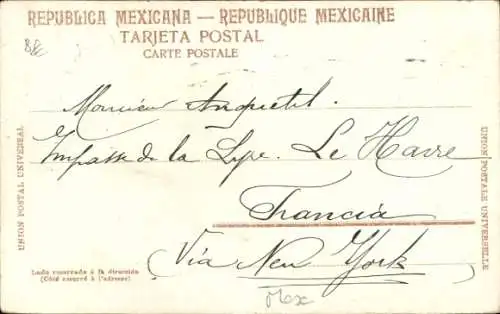 REPUBLICA MEXICANA — REPUBLIQUE MEXICAINE
TARJETA POSTAL
CARTE POSTALE
Monsieur Anquetil.
Impasse de la Lyre. Le Havre
Francia
Via New York
UNION POSTAL UNIVERSAL
UNION POSTALE UNIVERSELLE
Lado reservado á la dirección
(Côté réservé à l'adresse)
Mex